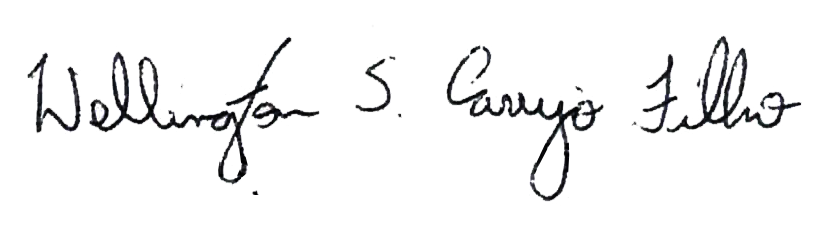 Wellington S. Carrijo Filho